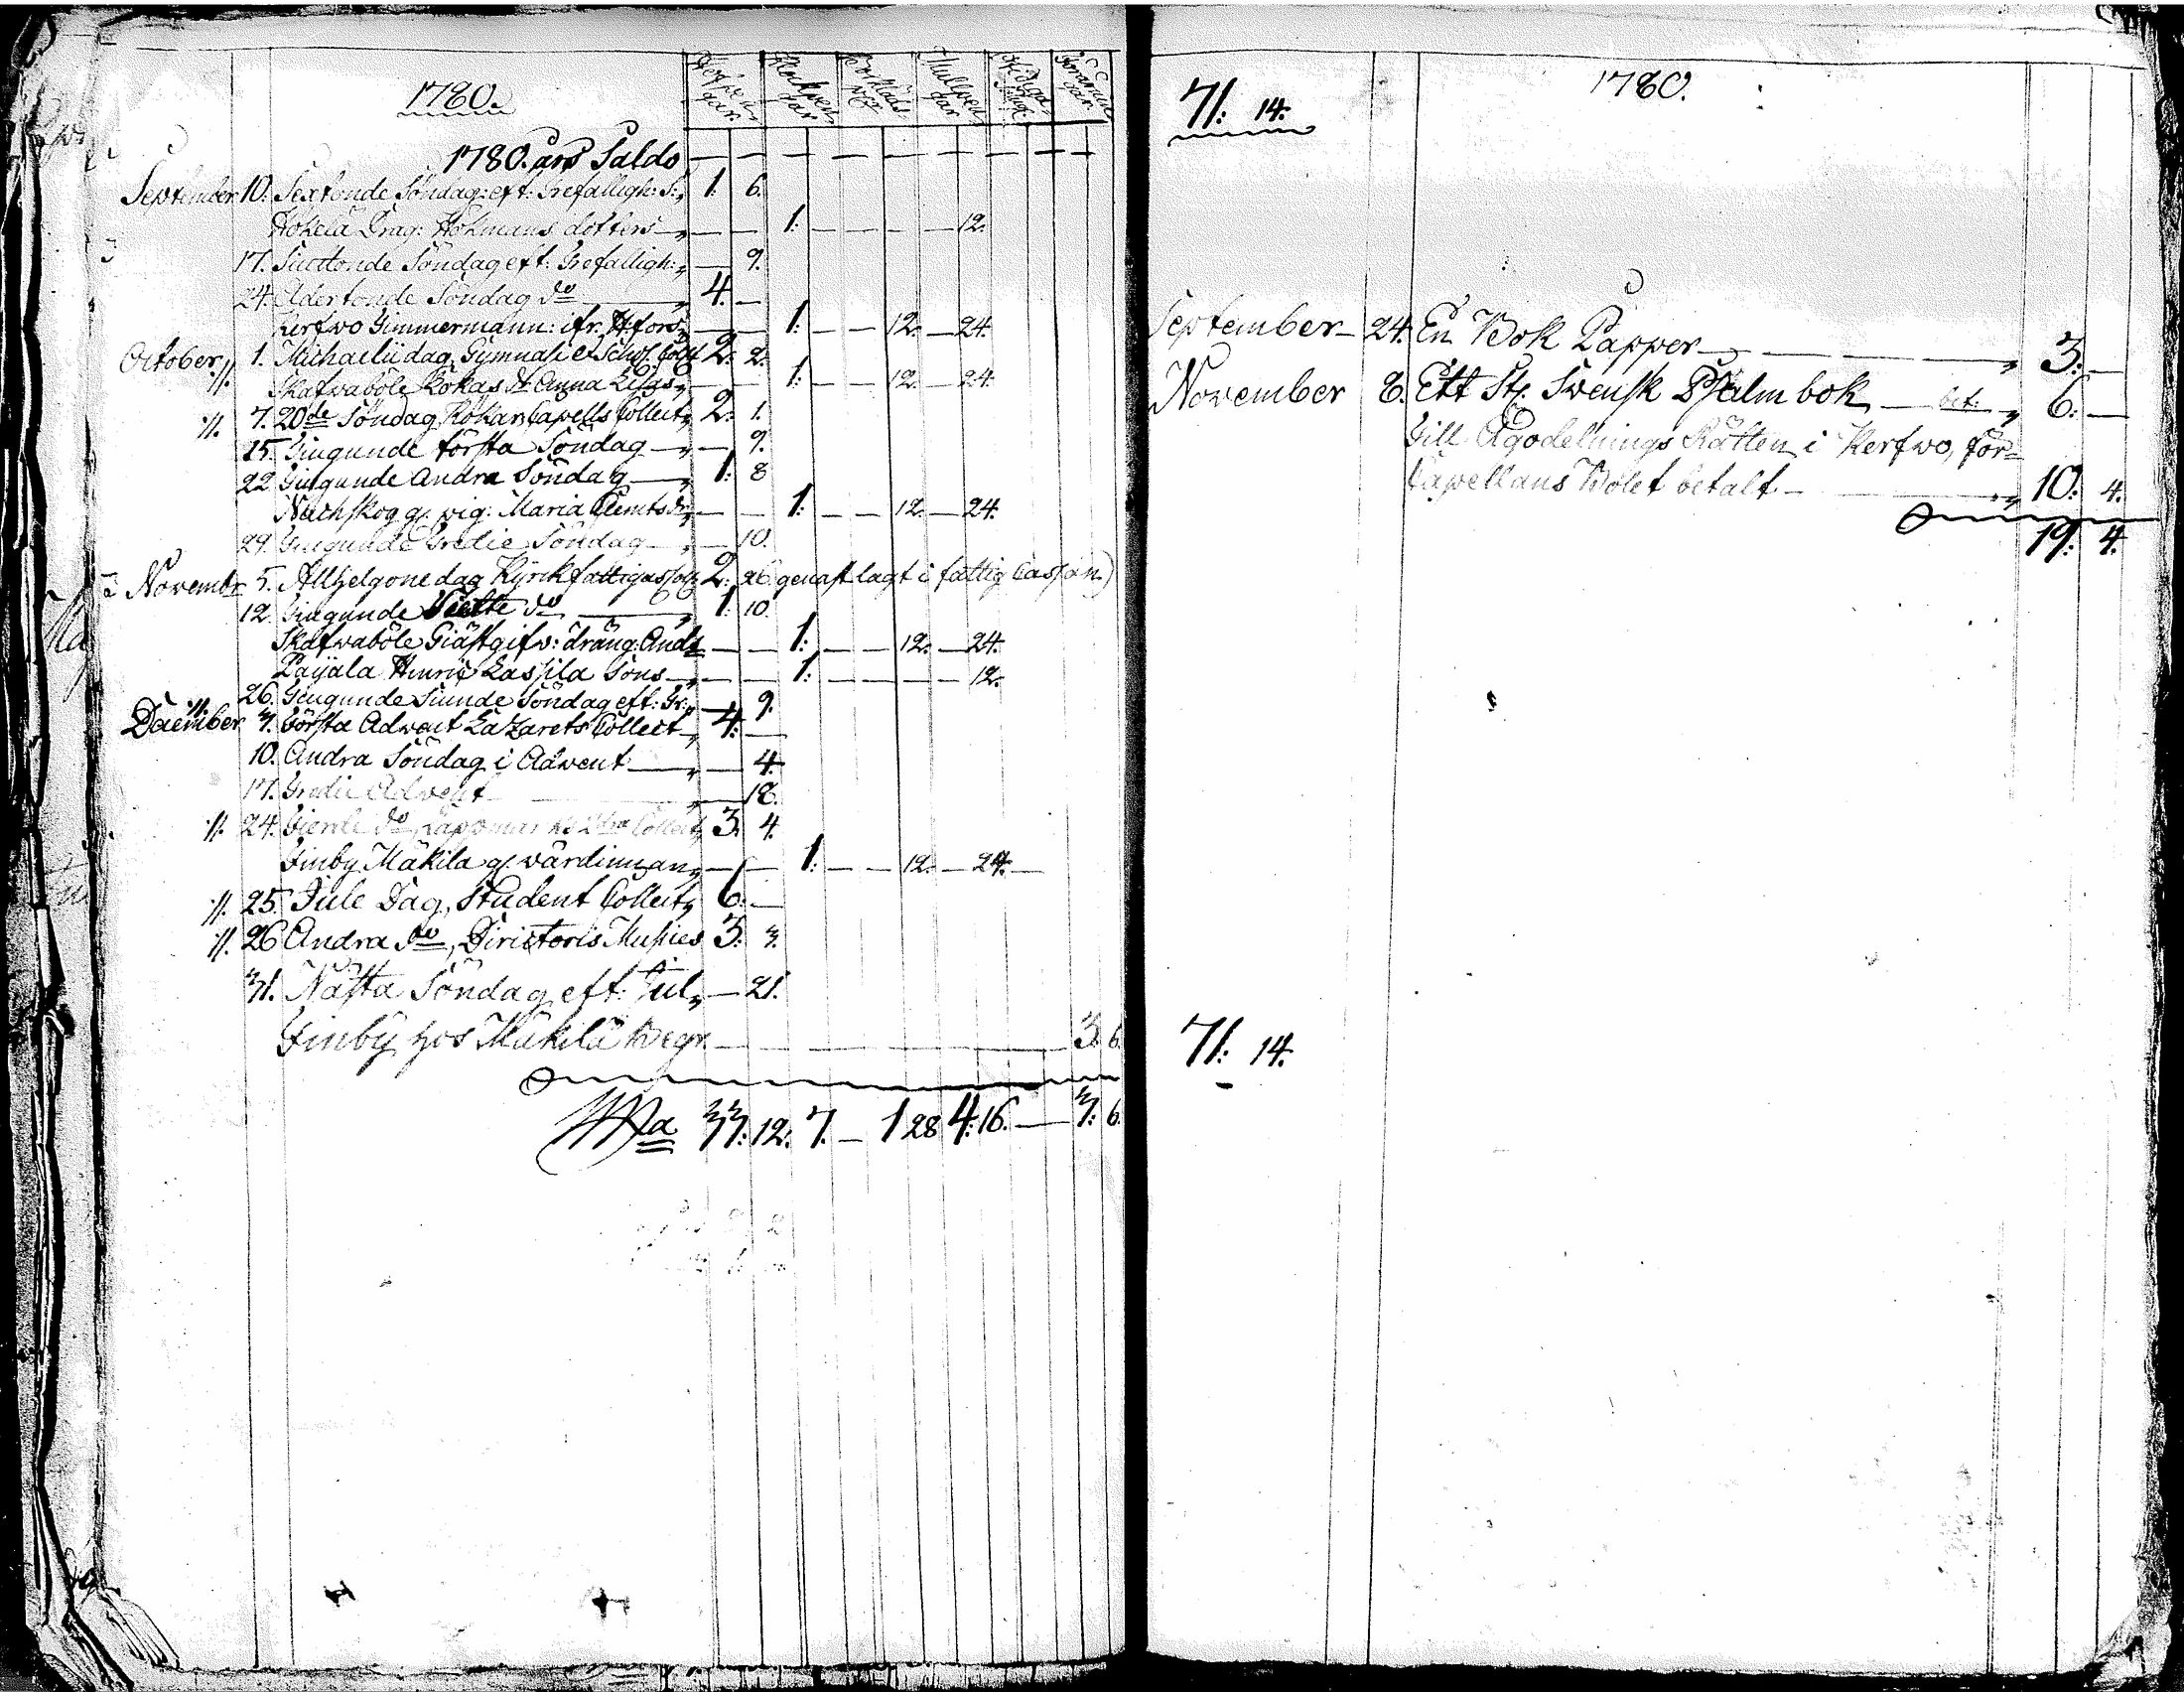 1780.
Håfpengar. Klockpengar Mullpengar
1780. års Saldo — — — — — — — — —
September 10. Sextonde Söndag: eft: Trefalligh: S:, 1. 6.
Drag: Hökmans dotters — — 1: — — — 12.
17. Siuttonde Söndag eft: Trefalligh: — 9.
24. Adertonde Söndag do — 4. —
Kerfwo Timmermann: ifr. H:fors — — 1: — — 12. — 24.
October. //. 1. Michaelii dag, Gymnasi et Schol. Coll 2. 2.
Skafwaböle Kökas dr Anna Lisas — — 1: — — 12. — 24.
//. 7. 20de Söndag, Kökar Capells Collect, 2. 1.
15. Tiugunde första Söndag — — 9.
22 Tiugunde Andra Söndag — 1: 8
g. pig: Maria Clemts dr — — 1: — — 12. — 24.
29. Tiugunde Tredie Söndag — — 10.
Novembr 5. Allhelgone dag Kyrkfattigas Coll, 2: 26. genast lagt i fattig Cassan)
12. Tiugunde do — 1. 10.
Skafwaböle Giästgifw: dräng Ands — — 1: — — 12. — 24.
Payala Henric Lassila Sons — — 1: — — — — 12.
26. Tiugunde Siunde Söndag eft: Tr: — 9.
December //. 3. Första Advent Lazarets Collect, 4: —
10. Andra Söndag i Advent — — 4.
17. Tredie Advent — 18.
//. 24. Fierde do, Lappmarks Collect, 3. 4.
Finby Mäkilä g. värdinnan, — — 1: — — 12. — 24. —
//. 25. Jule Dag, Student Collect, 6. —
//. 26 Andra do, Directoris Musices 3. 3.
31. Nästa Söndag eft: Jul, — 21.
Finby hos Mäkilä Begr. — 3: 6.
Sma 33: 12. 7. — 1 28 4: 16. — 3: 6.
71: 14. 1780.
September — 24. En Bok Papper — 3: —
November 8. Ett St. Svensk Psalmbok — bet: 6: —
Till Ägodelnings Rätten i Kerfwo, för
Capellans Bolet betalt — 10: 4.
19: 4.
71: 14.